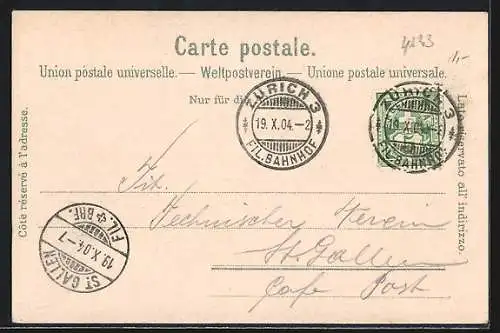 4233
1,-
Carte postale.
Union postale universelle. — Weltpostverein. — Unione postale universale.
Nur für die
Côté réservé à l'adresse.
Lato riservato all' indirizzo.
ZÜRICH 3
19.X.04.-2
FIL.BAHNHOF
ZÜRICH 3
19.X.04
FIL.BAHNHOF
Tit.
Technischer Verein
St. Gallen
Cafe Post
ST GALLEN
19.X.04.-7
FIL. BRF.